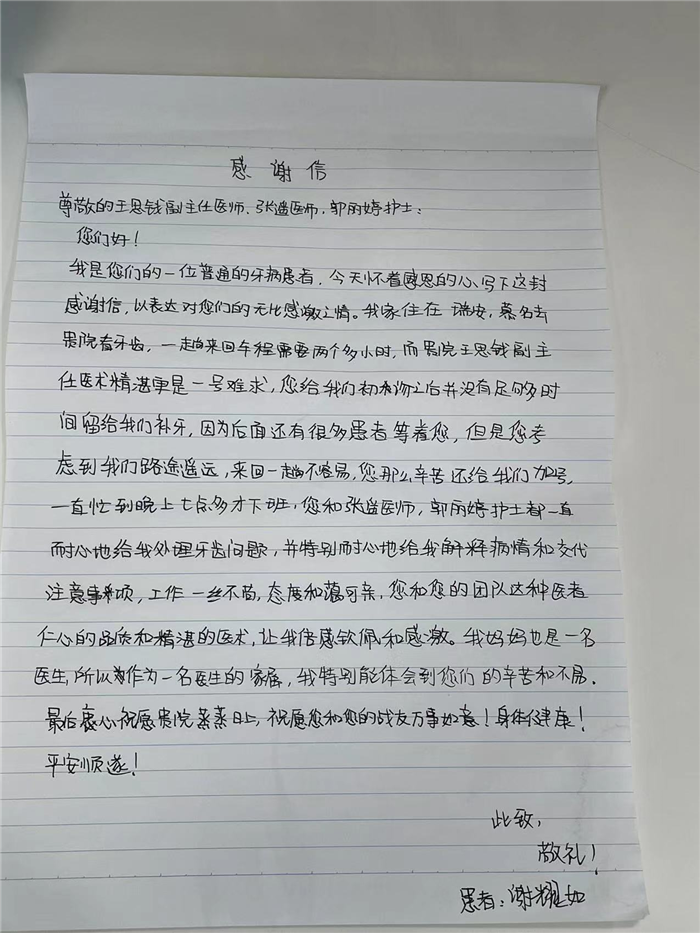 感谢信
尊敬的王思钱副主任医师、张遥医师,郭丽婷护士:
您们好!
我是您们的一位普通的牙病患者,今天怀着感恩的心写下这封
感谢信,以表达对您们的无比感激之情。我家住在 瑞安,慕名去
贵院看牙齿,一趟来回车程需要两个多小时,而贵院王思钱副主
任医术精湛更是一号难求,您给我们初之后并没有足够多时
间留给我们补牙,因为后面还有很多患者等着您,但是您考
虑到我们路途遥远,来回一趟不容易,您那么辛苦还给我们加号,
一直忙到晚上七点多才下班,您和张遥医师,郭丽婷护士都一直
耐心地给我处理牙齿问题,并特别耐心地给我解释病情和交代
注意事项,工作一丝不苟,态度和蔼可亲,您和您的团队这种医者
仁心的品质和精湛的医术,让我倍感钦佩和感激。我妈妈也是一名
医生,所以作为一名医生的家属,我特别能体会到您们的辛苦和不易.
最后衷心祝愿贵院蒸蒸日上,祝愿您和您的战友万事如意!身体健康!
平安顺遂!
此致,
敬礼!
患者:谢耀如